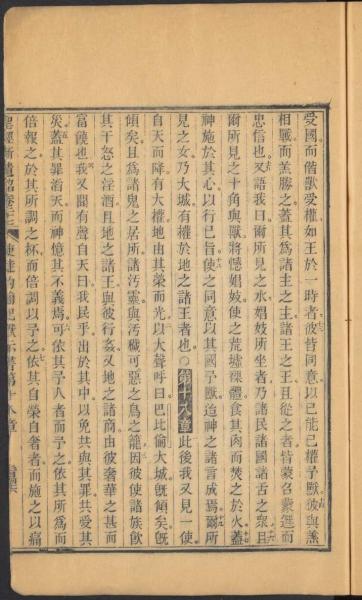 受國而偕獸受權如王於一時者彼皆同意以己能己權予獸彼與羔
相戰而羔勝之蓋其爲諸主之主諸王之王且從之者皆蒙召蒙選而
忠信也又語我曰爾所見之水娼妓所坐者乃諸民諸國諸舌之衆且
爾所見之十角與獸將憾娼妓使之荒墟裸體食其肉而焚之於火蓋
神施於其心以行己旨使之同意以其國予獸迨神之諸言成焉爾所
見之女乃大城有權於地之諸王者也○第十八章此後我又見一使
自天而降有大權地由其榮而光以大聲呼曰巴比倫大城旣傾矣旣
傾矣且爲諸鬼之居所諸汚靈與汚穢可惡之鳥之籠因彼使諸族飮
其干怒之淫酒且地之諸王與彼行姦又地之諸商由彼奢華之甚而
富饒也我又聞有聲自天曰我民乎出於其中以免共與其罪共受其
災蓋其罪滔天而神憶其不義焉可依其予人者而予之依其所爲而
倍報之於其所調之杯而倍調以予之依其自榮自奢者而施之以痛
聖經新遺詔卷之三 使徒約翰見默示書第十八章